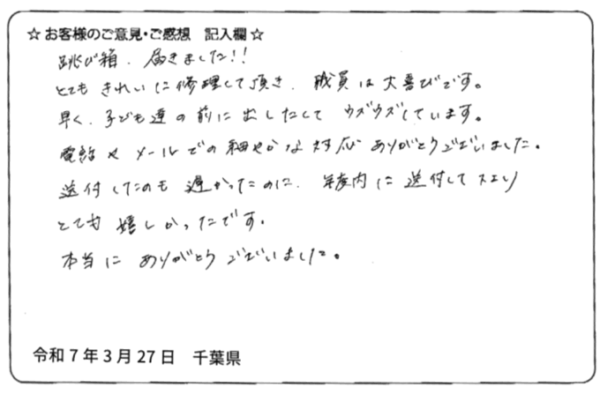 ☆お客様のご意見・ご感想 記入欄☆
跳び箱、届きました!!
とてもきれいに修理して頂き、職員は大喜びです。
早く、子ども達の前に出したくてウズウズしています。
電話やメールでの細やかな対応ありがとうございました。
送付したのも遅かったのに、年度内に送付して下さり
とても嬉しかったです。
本当にありがとうございました。
令和7年3月27日 千葉県